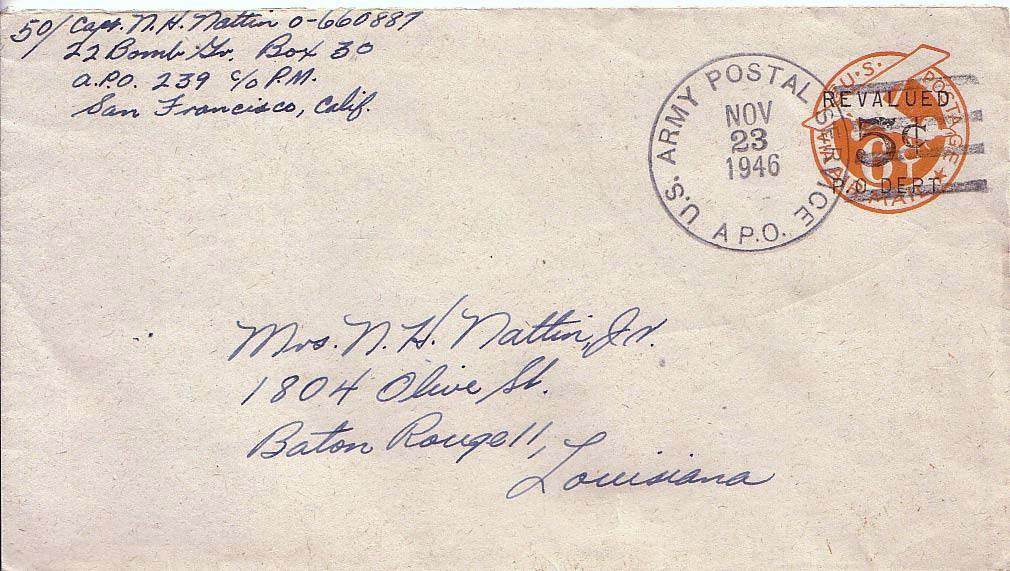 50/ Capt. N. H. Nattin O-660887
22 Bomb Gr. Box 30
A.P.O. 239 c/o P.M.
San Francisco, Calif.
U.S. ARMY POSTAL SERVICE
A.P.O.
NOV
23
1946
U.S. POSTAGE
REVALUED
5¢
6¢
P.O. DEPT.
AIR MAIL
Mrs. N. H. Nattin, Jr.
1804 Olive St.
Baton Rouge 11,
Louisiana